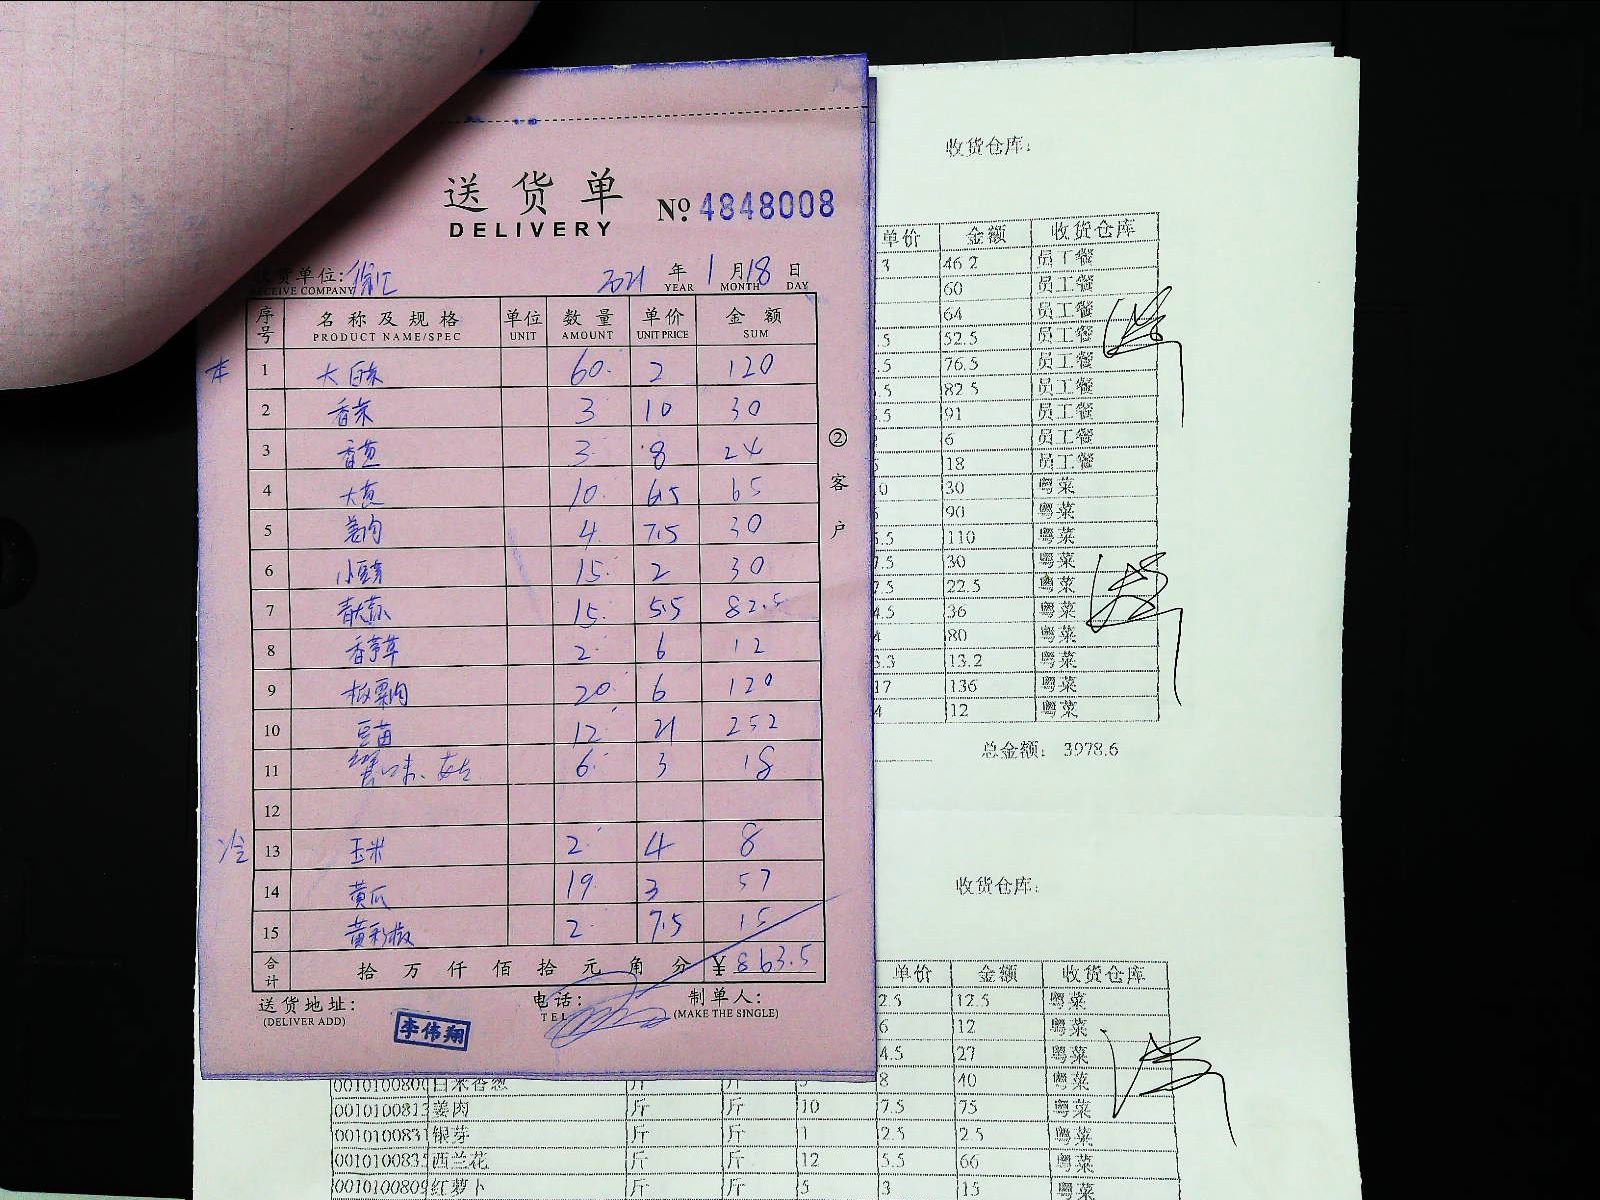 送货单
DELIVERY
№ 4848008
货单位: 徐汇
RECEIVE COMPANY
2021 年 1 月 18 日
YEAR MONTH DAY
序号 名称及规格 单位 数量 单价 金额
PRODUCT NAME/SPEC UNIT AMOUNT UNIT PRICE SUM
本 1 大白菜 60 2 120
2 香菜 3 10 30
3 香葱 3 8 24
4 大葱 10 6.5 65
5 姜肉 4 7.5 30
6 小豆芽 15 2 30
7 15 5.5 82.5
8 香芹草 2 6 12
9 板栗肉 20 6 120
10 豆苗 12 21 252
11 6 3 18
12
冷 13 玉米 2 4 8
14 黄瓜 19 3 57
15 黄彩椒 2 7.5 15
合计 拾 万 仟 佰 拾 元 角 分 ¥ 863.5
送货地址: 电话: 制单人:
(DELIVER ADD) TEL (MAKE THE SINGLE)
李伟翔
②客户
收货仓库:
单价 金额 收货仓库
3 46.2 员工餐
60 员工餐
64 员工餐
5 52.5 员工餐
.5 76.5 员工餐
.5 82.5 员工餐
.5 91 员工餐
6 员工餐
18 员工餐
0 30 粤菜
90 粤菜
5.5 110 粤菜
7.5 30 粤菜
7.5 22.5 粤菜
4.5 36 粤菜
4 80 粤菜
3.3 13.2 粤菜
17 136 粤菜
4 12 粤菜
总金额: 3978.6
收货仓库:
单价 金额 收货仓库
2.5 12.5 粤菜
6 12 粤菜
4.5 27 粤菜
8 40 粤菜
0010100813 姜肉 斤 斤 10 7.5 75 粤菜
001010083 银芽 斤 斤 1 2.5 2.5 粤菜
001010083 西兰花 斤 斤 12 5.5 66 粤菜
001010080 红萝卜 斤 斤 5 3 15 粤菜